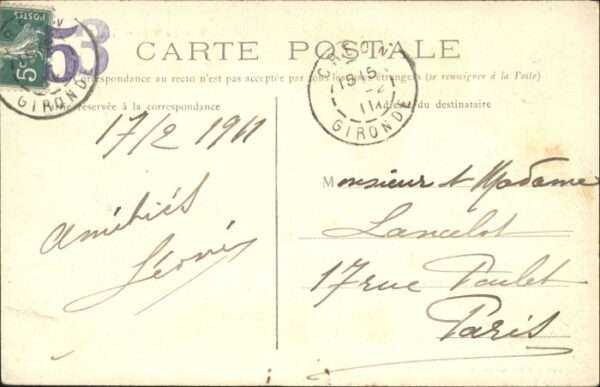 POSTES
5c
53
CARTE POSTALE
Correspondance au recto n'est pas acceptée par tous les pays étrangers (se renseigner à la Poste)
Partie réservée à la correspondance
Adresse du destinataire
GIRONDE
15 15
11
GIRONDE
17/2 1911
Amitiés
Léonie
Monsieur & Madame
Lancelot
17 rue Poulet
Paris